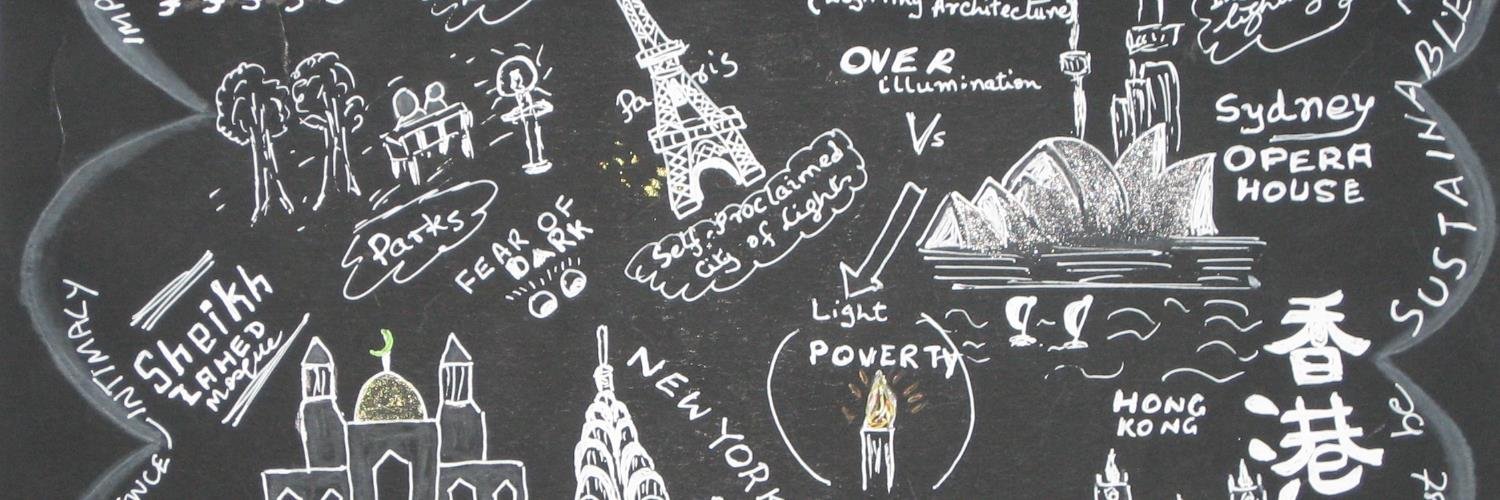 (Lighting Architecture)
lighting
OVER
illumination
Vs
Paris
Self-proclaimed
City of Light
Sydney
OPERA
HOUSE
SUSTAINABLE
Parks
FEAR OF
DARK
Light
POVERTY
INTIMACY
Sheikh
ZAHED
Mosque
NEW YORK
HONG
KONG
香港
be